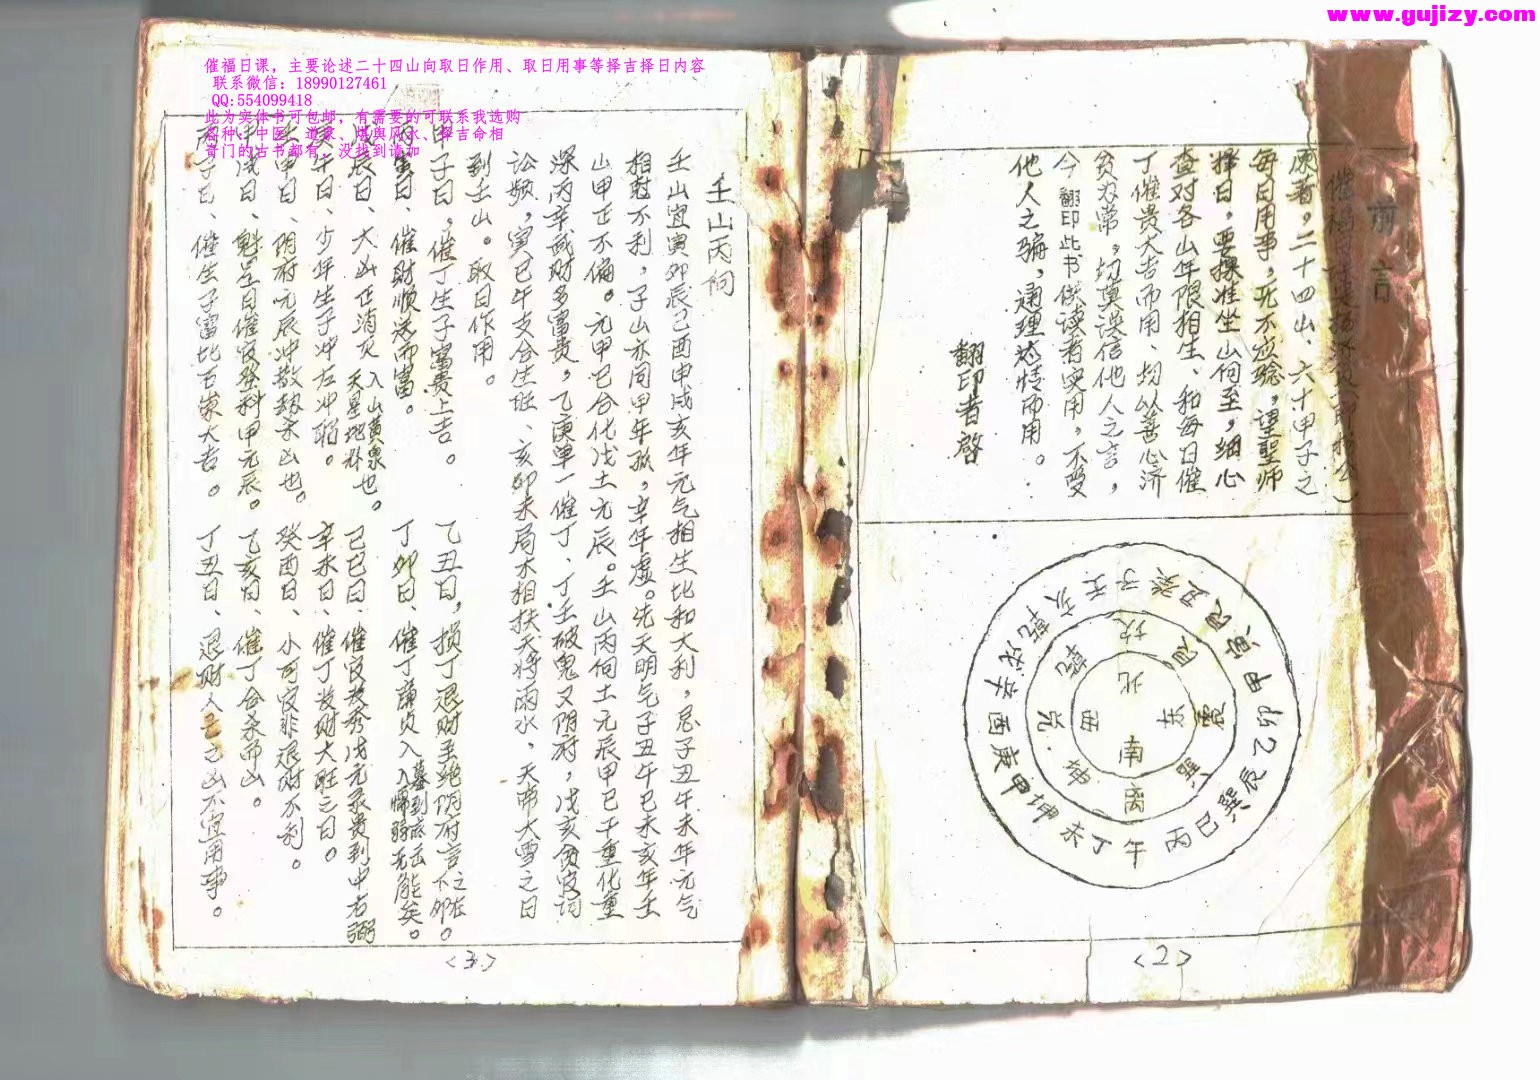 www.gujizy.com
催福日课，主要论述二十四山向取日作用、取日用事等择吉择日内容
联系微信：18990127461
QQ:554099418
此为实体书可包邮，有需要的可联系我选购
各种：中医、道家、堪舆风水、择吉命相
奇门的古书都有，没找到请加
前言
原者，二十四山、六十甲子之
每日用事，无不应验，望聖师
择日，要择准坐山向至，细心
查对各山年限相生、和每日催
丁催贵大吉而用、均以善心济
贫为常，切莫误信他人之言，
今翻印此书供读者实用，不受
他人之骗，通理达情而用。
翻印者啓
北 坎 艮 东 震 巽 南 离 坤 西 兑 乾
壬 子 癸 丑 艮 寅 甲 卯 乙 辰 巽 巳 丙 午 丁 未 坤 申 庚 酉 辛 戌 乾 亥
<2>
壬山丙向
壬山宜寅卯辰巳酉申戌亥年元气相生比和大利，忌子丑午未年元气
相克不利，子山亦同甲年孤，辛年虚。先天明气子丑午巳未亥年壬
山甲正不偏。元甲巳合化戊土元辰。壬山丙向土元辰甲巳干重化重
深丙辛武财多富贵，乙庚单一催丁、丁壬破鬼又阴府，戊亥贪官词
讼频，寅巳午支合生旺、亥卯未局木相扶天将雨水，天帝大雪之日
到壬山。取日作用。
甲子日，催丁生子富贵上吉。
乙丑日，损丁退财至绝阴府言之在不卯。
丙寅日、催财顺送而富。
丁卯日、催丁廉贞入墓到底去能矣。
戊辰日、大凶正消灭入山黄泉也。天星地料
己巳日、催官发秀戊元录贵到中右弼
庚午日、少年生子冲左冲陷。
辛未日、催丁发财大旺之日。
壬申日、阴府元辰冲散疑未凶也。
癸酉日、小可官非退财不利。
甲戌日、魁星日催官登科甲元辰。
乙亥日、催丁合杀而凶。
丙子日、催生子富比石崇大吉。
丁丑日、退财人口之凶不宜用事。
<3>